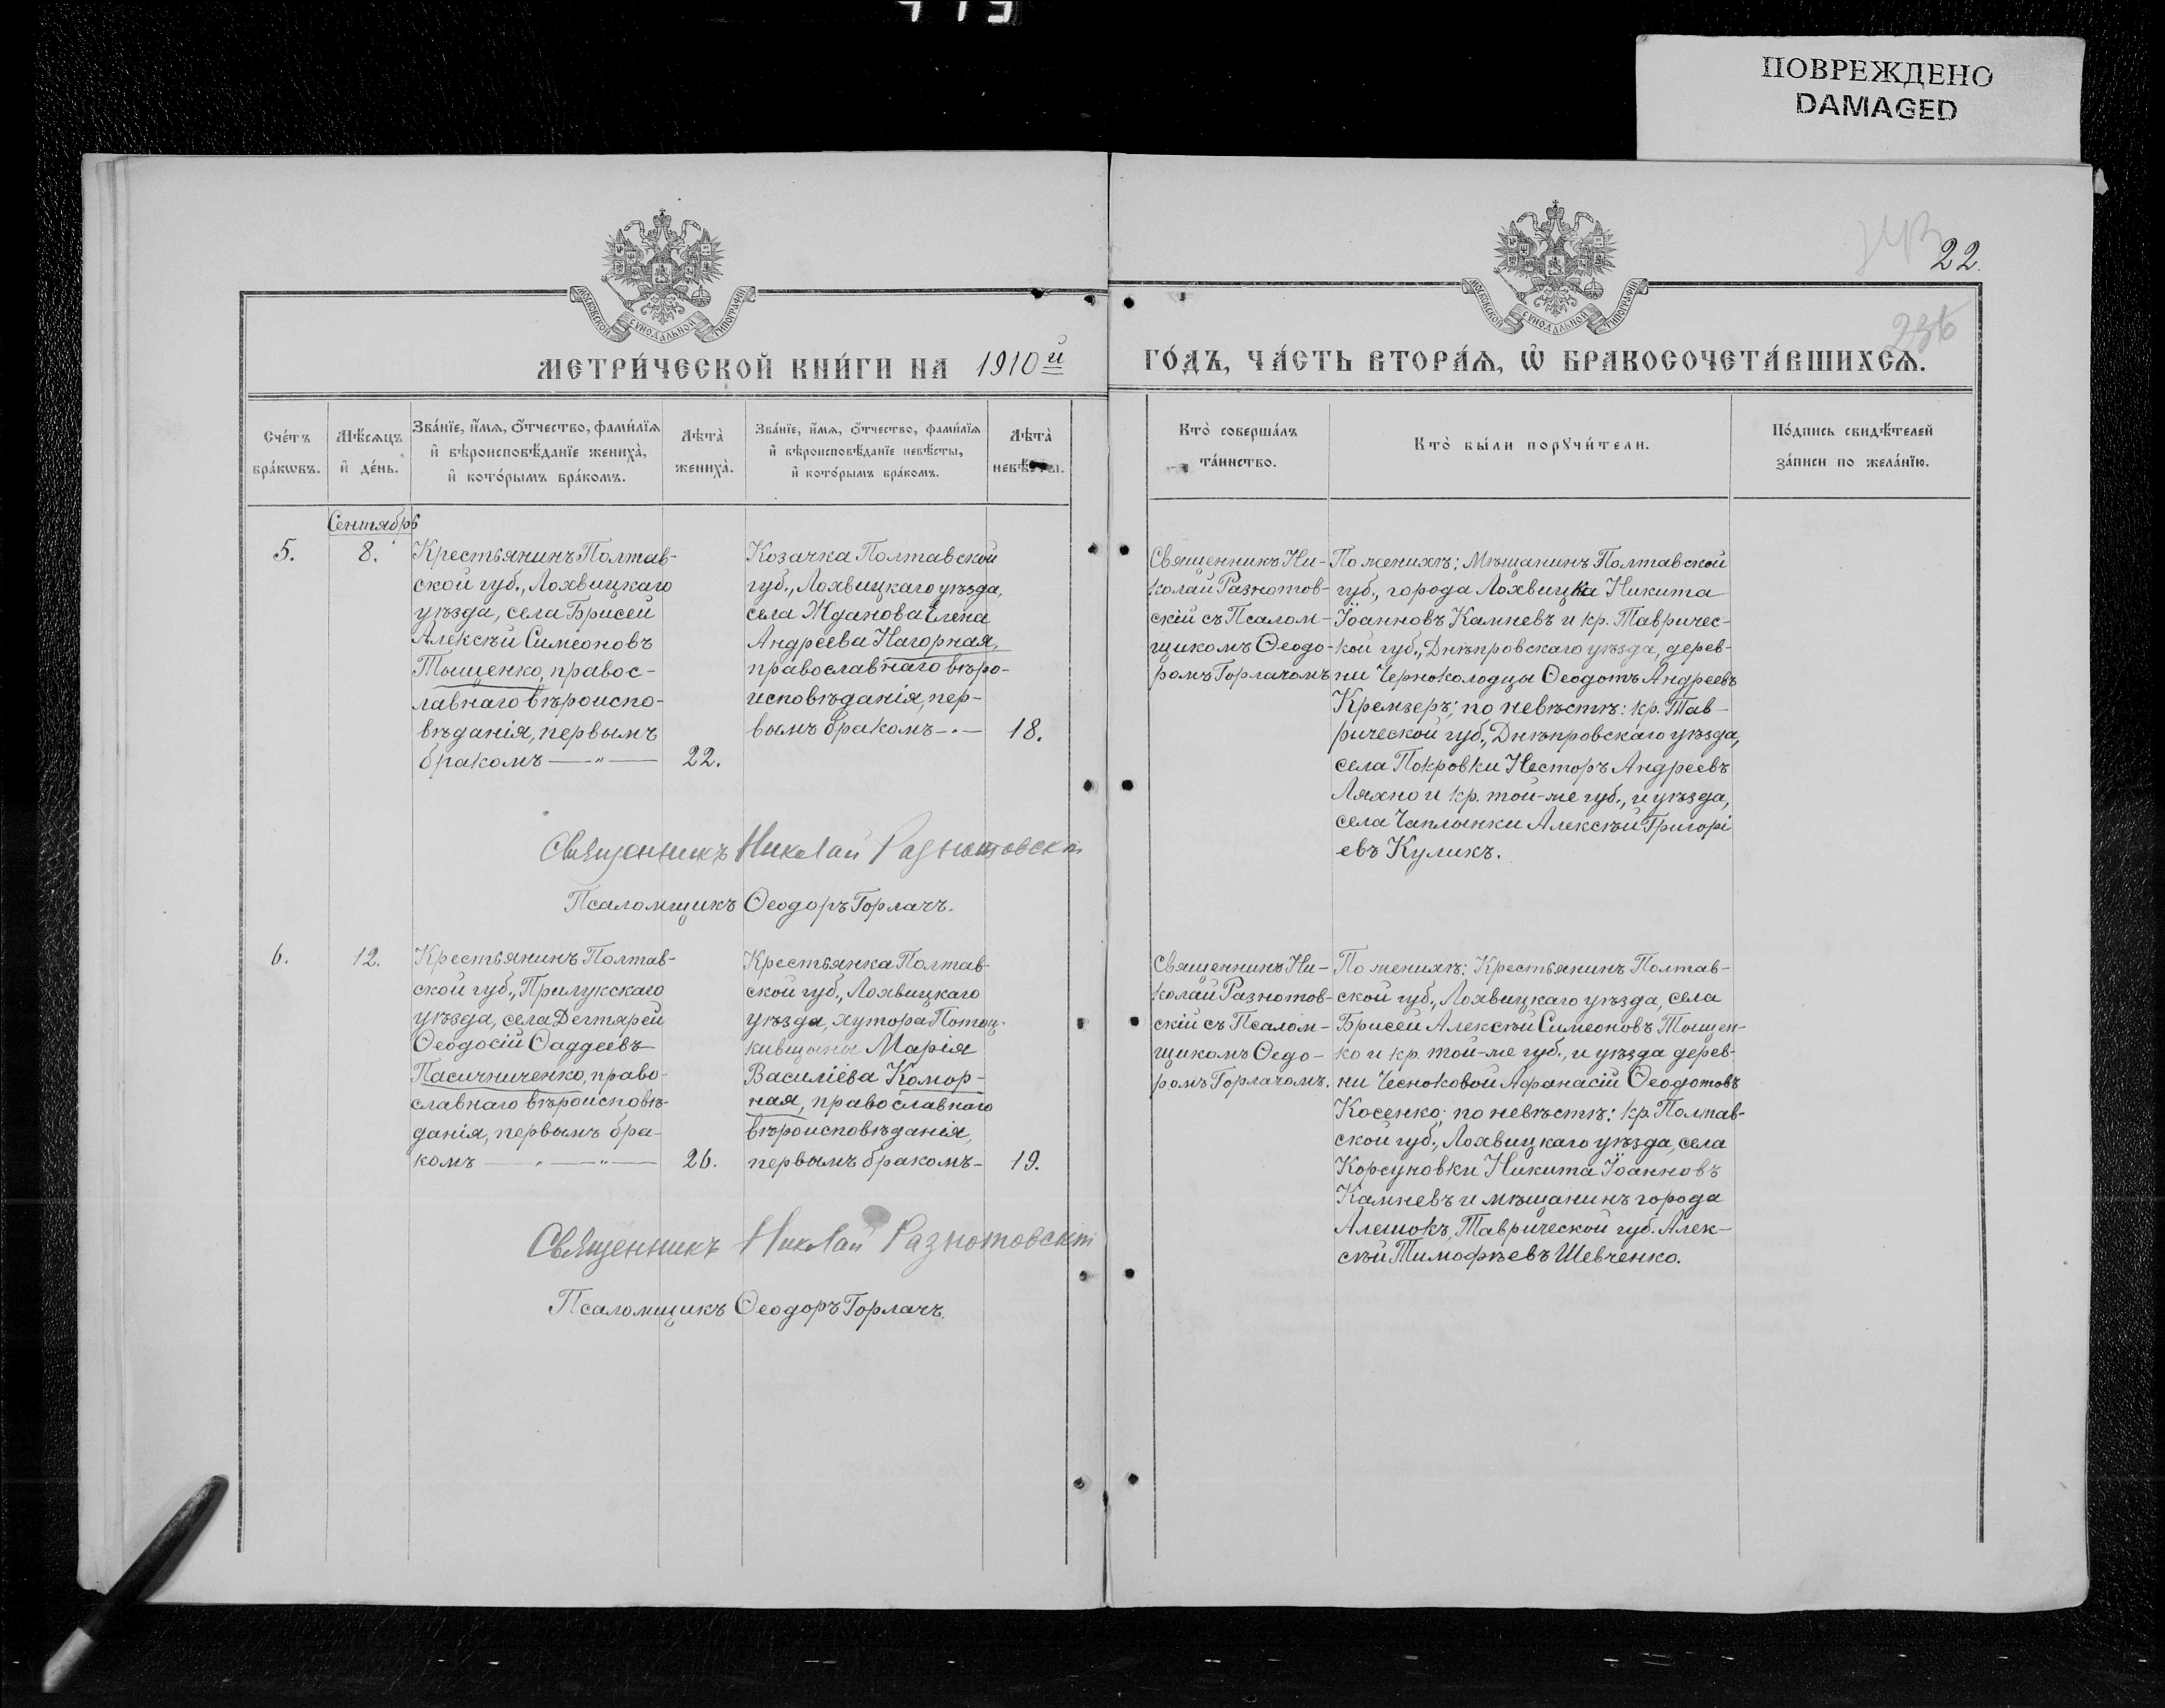 ПОВРЕЖДЕНО
DAMAGED
22.
236
МОСКОВСКОЙ СѴНОДАЛЬНОЙ ТИПОГРАФІИ
МОСКОВСКОЙ СѴНОДАЛЬНОЙ ТИПОГРАФІИ
МЕТРИ́ЧЕСКОЙ КНИ́ГИ НА 1910й
ГО́ДЪ, ЧА́СТЬ ВТОРА́Ѧ, Ѡ҆ БРАКОСОЧЕТА́ВШИХСѦ.
Сче́тъ
бра́кѡвъ.
Мѣ́сѧцъ
и҆ де́нь.
Зва́нїе, и҆́мѧ, ѻ҆́тчество, фами́лїѧ
и҆ вѣроисповѣ́данїе жениха̀,
и҆ кото́рымъ бра́комъ.
Лѣта̀
жениха̀.
Зва́нїе, и҆́мѧ, ѻ҆́тчество, фами́лїѧ
и҆ вѣроисповѣ́данїе невѣ́сты,
и҆ кото́рымъ бра́комъ.
Лѣта̀
невѣ́сты.
Кто̀ соверша́лъ
та́инство.
Кто̀ бы́ли порꙋчи́тели.
По́дпись свидѣ́телей
за́писи по жела́нїю.
Сентябрь
5.
8.
Крестьянинъ Полтав-
ской губ., Лохвицкаго
уѣзда, села Брисей
Алексѣй Симеоновъ
Тыщенко, правос-
лавнаго вѣроиспо-
вѣданія, первымъ
бракомъ —„—
22.
Козачка Полтавской
губ., Лохвицкаго уѣзда,
села Жданова Елена
Андреева Нагорная,
православнаго вѣро-
исповѣданія, пер-
вымъ бракомъ —.—
18.
Священникъ Ни-
колай Разнотов-
скій съ Псалом-
щикомъ Ѳеодо-
ромъ Горлачомъ
По женихѣ: Мѣщанинъ Полтавской
губ., города Лохвицка Никита
Іоанновъ Камневъ и кр. Тавричес-
кой губ., Днѣпровскаго уѣзда, дерев-
ни Черноколодцы Ѳеодотъ Андреевъ
Кремзеръ; по невѣстѣ: кр. Тав-
рической губ., Днѣпровскаго уѣзда,
села Покровки Несторъ Андреевъ
Ляхно и кр. той-же губ., и уѣзда,
села Чаплынки Алексѣй Григорі
евъ Куликъ.
Священникъ Николай Разнотовскій
Псаломщикъ Ѳеодоръ Горлачъ.
6.
12.
Крестьянинъ Полтав-
ской губ., Прилукскаго
уѣзда, села Дегтярей
Ѳеодосій Ѳаддеевъ
Пасичниченко, право-
славнаго вѣроисповѣ-
данія, первымъ бра-
комъ —„—„—
26.
Крестьянка Полтав-
ской губ., Лохвицкаго
уѣзда, хутора Потоц-
кивщины Марія
Василіева Комор-
ная, православнаго
вѣроисповѣданія,
первымъ бракомъ-
19.
Священникъ Ни-
колай Разнотов-
скій съ Псалом-
щикомъ Ѳедо-
ромъ Горлачомъ.
По женихѣ: Крестьянинъ Полтав-
ской губ., Лохвицкаго уѣзда, села
Брисей Алексѣй Симеоновъ Тыщен-
ко и кр. той-же губ., и уѣзда дерев-
ни Чесноковой Афанасій Ѳеодотовъ
Косенко; по невѣстѣ: кр. Полтав-
ской губ., Лохвицкаго уѣзда, села
Корсуновки Никита Іоанновъ
Камневъ и мѣщанинъ города
Алешокъ, Таврической губ. Алек-
сѣй Тимофѣевъ Шевченко.
Священникъ Николай Разнотовскій
Псаломщикъ Ѳеодоръ Горлачъ.